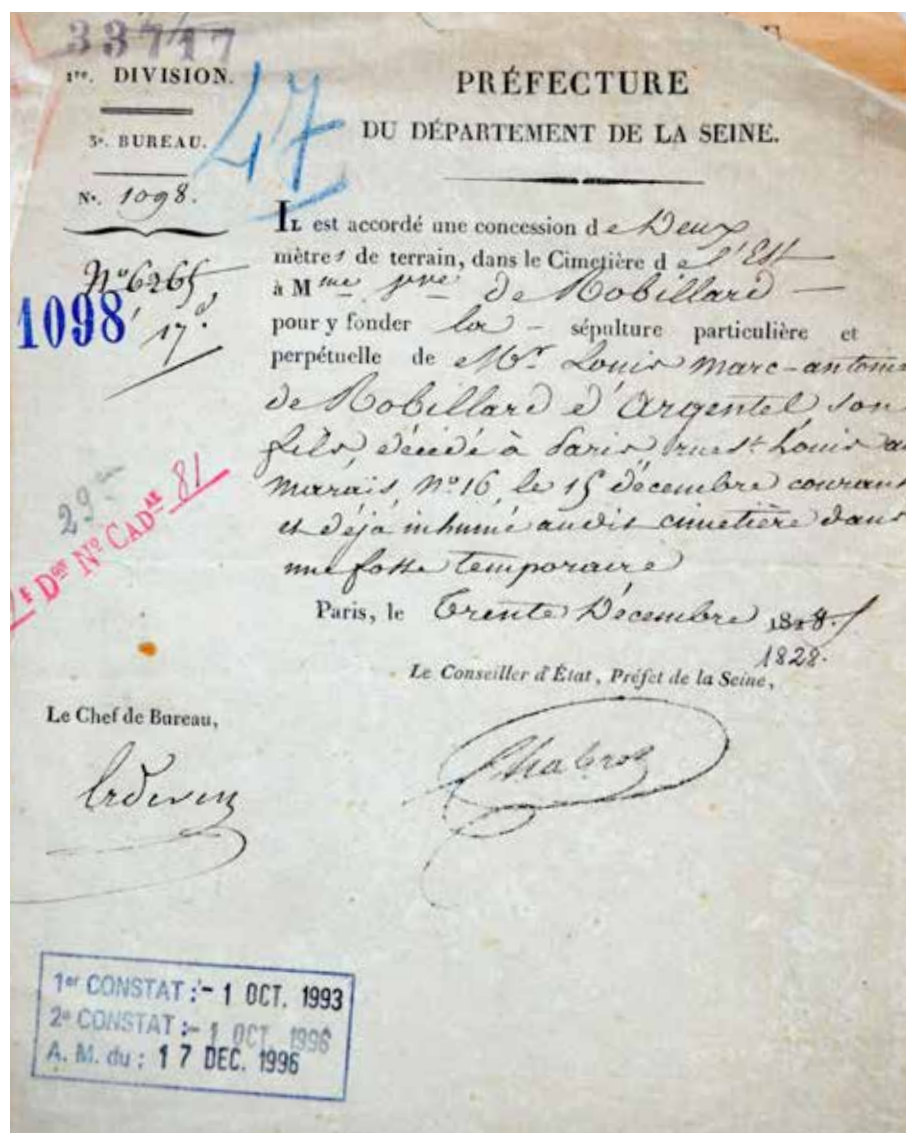 33717
1re. DIVISION.
3e. BUREAU.
No. 1098.
No 6265
1098
17 d.
47
29
Don No CADAL 81
PRÉFECTURE
DU DÉPARTEMENT DE LA SEINE.
IL est accordé une concession de Deux
mètres de terrain, dans le Cimetière de l'Est
à Mme de Robillard
pour y fonder la sépulture particulière et
perpétuelle de Mr. Louis Marc-antoine
de Robillard d'Argentel, son
fils, décédé à Paris, rue St. Louis au
marais, No 16, le 15 décembre courant
et déjà inhumé audit cimetière dans
une fosse temporaire
Paris, le Trente Décembre 1818.
1828.
Le Conseiller d'État, Préfet de la Seine,
Chabrol
Le Chef de Bureau,
1er CONSTAT :- 1 OCT. 1993
2e CONSTAT :- 1 OCT. 1996
A. M. du : 17 DEC. 1996